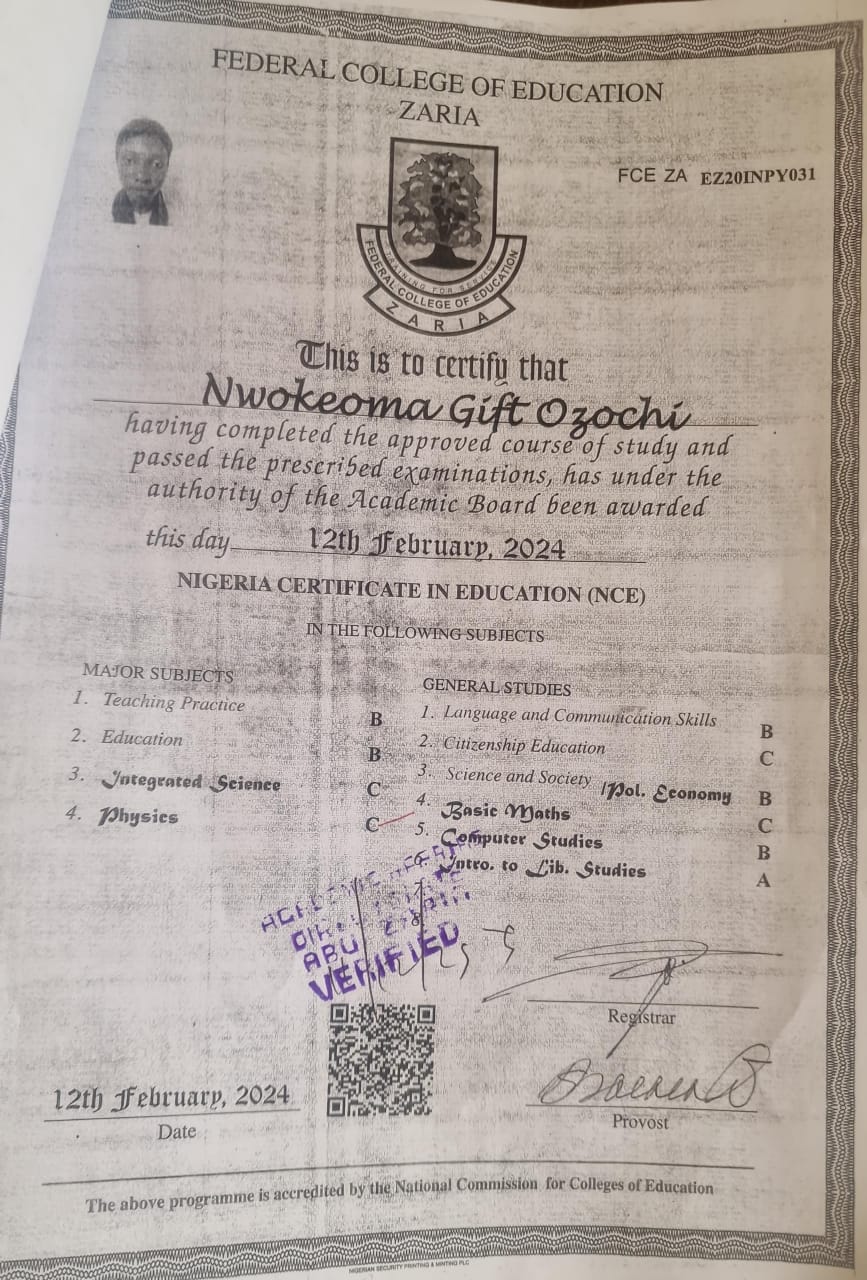 FEDERAL COLLEGE OF EDUCATION
ZARIA
FCE ZA EZ20INPY031
TRAINING FOR SERVICE
FEDERAL COLLEGE OF EDUCATION
ZARIA
This is to certify that
Nwokeoma Gift Ozochi
having completed the approved course of study and
passed the prescribed examinations, has under the
authority of the Academic Board been awarded
this day 12th February, 2024
NIGERIA CERTIFICATE IN EDUCATION (NCE)
IN THE FOLLOWING SUBJECTS
MAJOR SUBJECTS
1. Teaching Practice B
2. Education B
3. Integrated Science C
4. Physics C
GENERAL STUDIES
1. Language and Communication Skills B
2. Citizenship Education C
3. Science and Society /Pol. Economy B
4. Basic Maths C
5. Computer Studies B
6. Intro. to Lib. Studies A
ABU
VERIFIED
Registrar
12th February, 2024
Date
Provost
The above programme is accredited by the National Commission for Colleges of Education
NIGERIAN SECURITY PRINTING & MINTING PLC